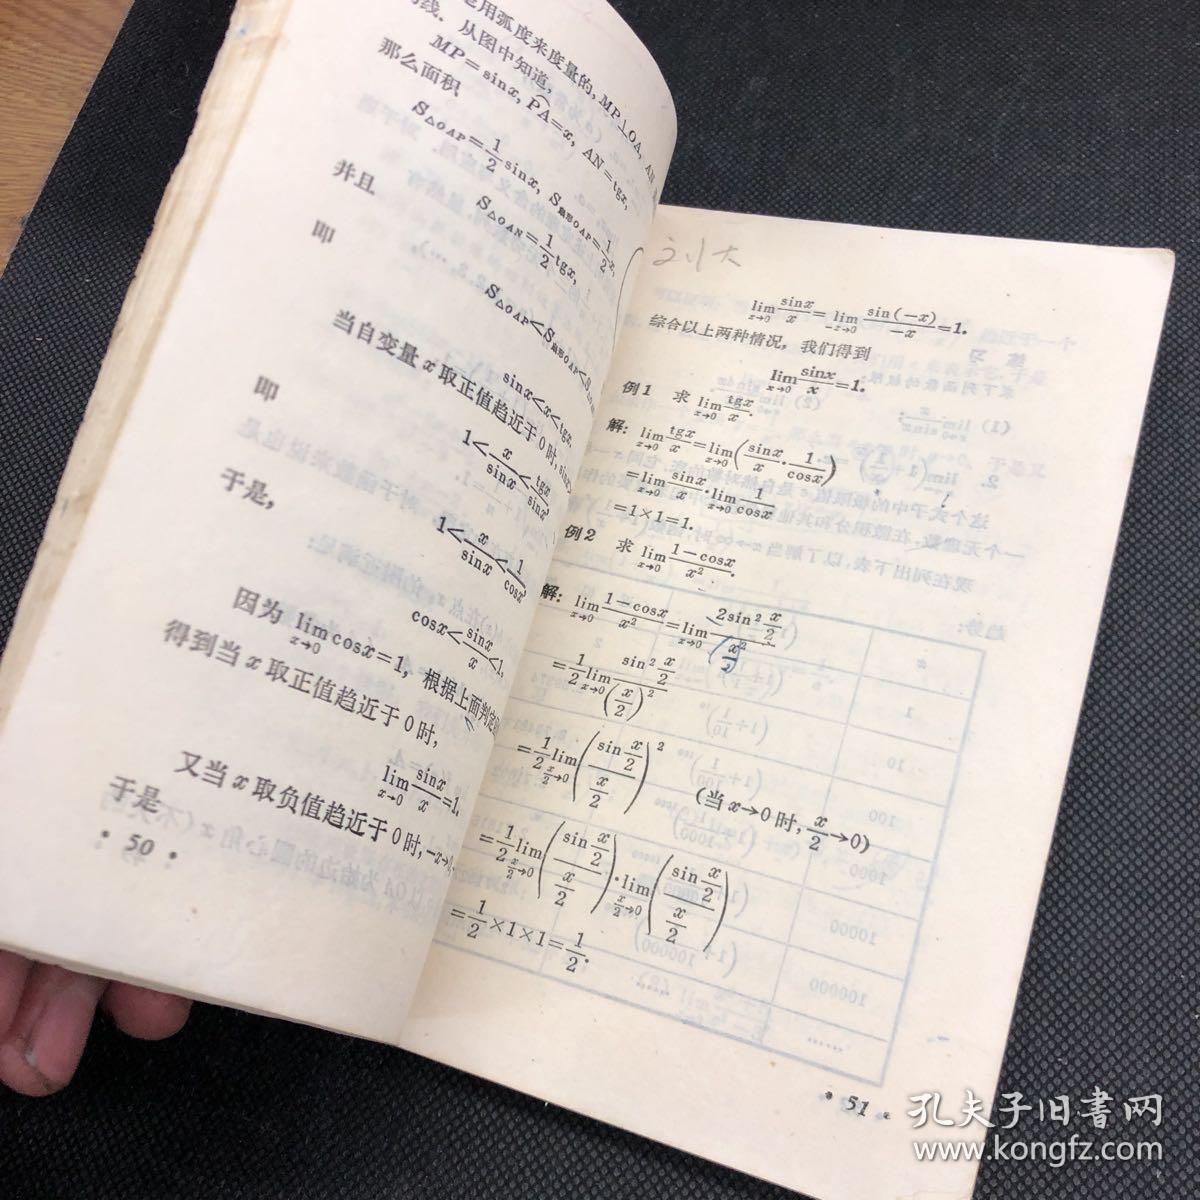 是用弧度来度量的, MP⊥OA, AN
线. 从图中知道,
MP=sinx, P͡A=x, AN=tgx,
那么面积
S△OAP=1/2 sinx, S扇形OAP=1/2 x,
S△OAN=1/2 tgx,
并且
S△OAP<S扇形OAP<S
即
sinx<x<tgx.
当自变量 x 取正值趋近于 0 时, sinx
1<x/sinx<tgx/sinx,
即
1<x/sinx<1/cosx.
于是,
cosx<sinx/x<1,
因为 lim x→0 cosx=1, 根据上面判定
得到当 x 取正值趋近于 0 时,
lim x→0 sinx/x=1.
又当 x 取负值趋近于 0 时, -x→0,
于是
• 50 •
刘大
lim x→0 sinx/x=lim -x→0 sin(-x)/-x=1.
综合以上两种情况, 我们得到
lim x→0 sinx/x=1.
例1 求 lim x→0 tgx/x.
解: lim x→0 tgx/x=lim x→0 (sinx/x·1/cosx)
=lim x→0 sinx/x·lim x→0 1/cosx
=1×1=1.
例2 求 lim x→0 1-cosx/x².
解: lim x→0 1-cosx/x²=lim x→0 2sin² x/2 / x²
=1/2 lim x→0 sin² x/2 / (x/2)²
=1/2 lim x/2→0 (sin x/2 / x/2)² (当 x→0 时, x/2→0)
=1/2 lim x/2→0 (sin x/2 / x/2)·lim x/2→0 (sin x/2 / x/2)
=1/2×1×1=1/2.
• 51 •
孔夫子旧书网
www.kongfz.com